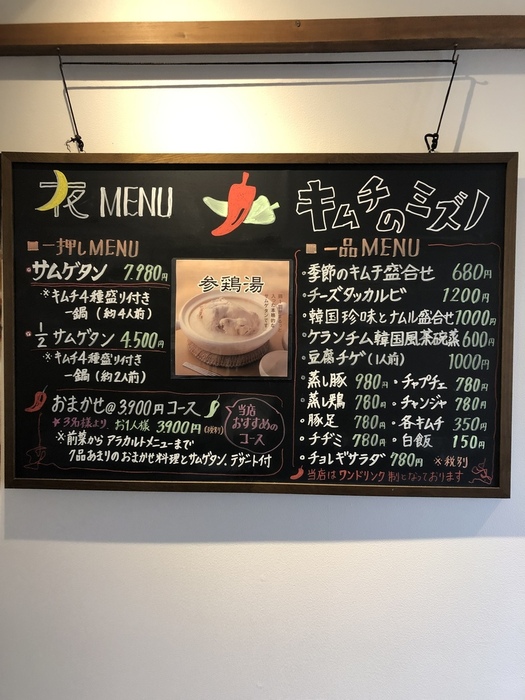 夜 MENU
キムチのミズノ
一押しMENU
サムゲタン 7,980円
※キムチ4種盛り付き
一鍋(約4人前)
1/2 サムゲタン 4,500円
※キムチ4種盛り付き
一鍋(約2人前)
参鶏湯
おまかせ@3,900円コース
★3名様より お1人様 3,900円(税別)
※前菜からアラカルトメニューまで
7品あまりのおまかせ料理とサムゲタン、デザート付
当店
おすすめの
コース
一品MENU
・季節のキムチ盛合せ 680円
・チーズタッカルビ 1200円
・韓国珍味とナムル盛合せ1000円
・ケランチム韓国風茶碗蒸600円
・豆腐チゲ(1人前) 1000円
・蒸し豚 980円 ・チャプチェ 780円
・蒸し鶏 780円 ・チャンジャ 780円
・豚足 780円 ・各キムチ 350円
・チヂミ 780円 ・白飯 150円
・チョレギサラダ 780円 ※税別
当店はワンドリンク制となっております